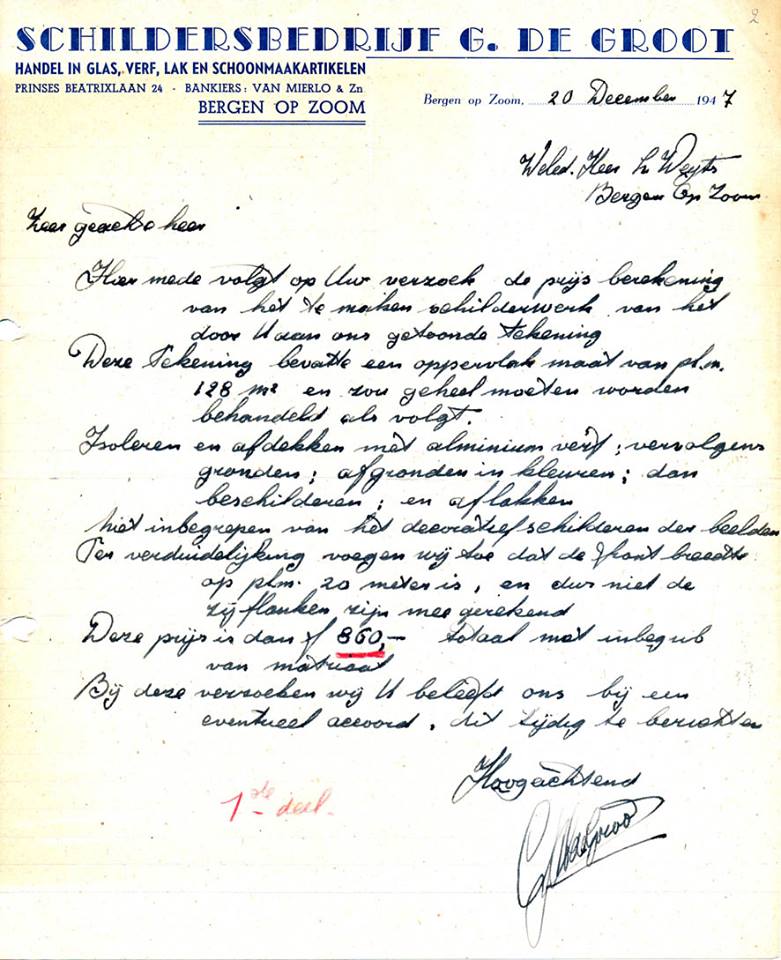 2
SCHILDERSBEDRIJF G. DE GROOT
HANDEL IN GLAS, VERF, LAK EN SCHOONMAAKARTIKELEN
PRINSES BEATRIXLAAN 24 - BANKIERS: VAN MIERLO & Zn
BERGEN OP ZOOM
Bergen op Zoom, 20 December 1947
Weled. Heer L. Weyts
Bergen Op Zoom
Zeer geachte heer
Hier mede volgt op Uw verzoek de prijs berekening
van het te maken schilderwerk van het
door U aan ons getoonde tekening
Deze Tekening bevatte een oppervlak maat van pl.m.
128 m² en zou geheel moeten worden
behandeld als volgt.
Isoleren en afdekken met alminium verf; vervolgens
gronden; afgronden in kleuren; dan
beschilderen; en aflakken
niet inbegrepen van het decoratief schilderen der beelden
Ter verduidelijking voegen wij toe dat de front breedte
op plm. 20 meter is, en dus niet de
zij flanken zijn mee gerekend
Deze prijs is dan f 860,- totaal met inbegrib
van matriaal
Bij deze verzoeken wij U beleefd ons bij een
eventueel accoord, dit tijdig te berichten
Hoogachtend
1ste deel.